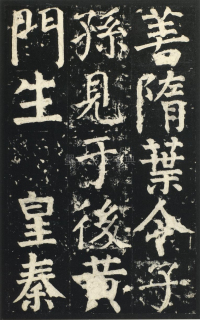 善隋葉令子
孫見于後黃
門生　皇秦